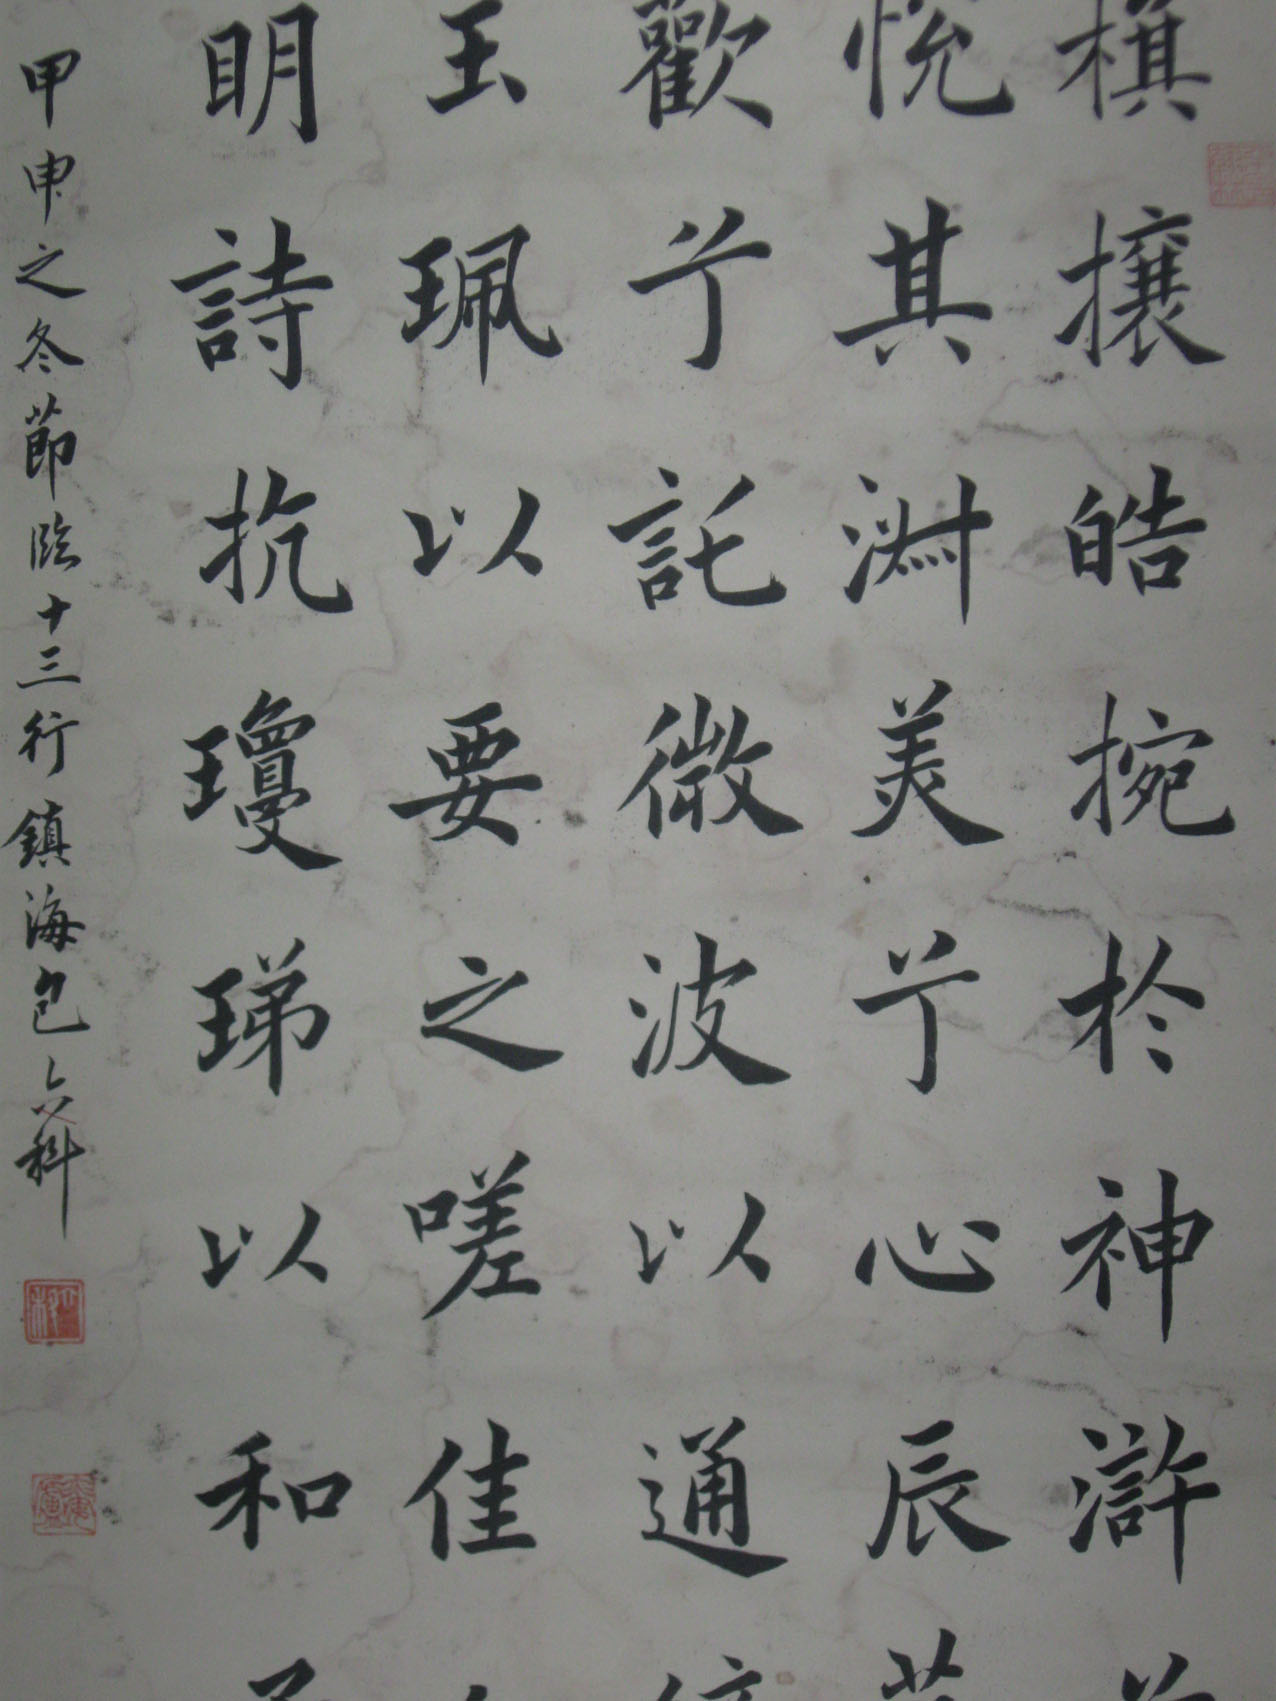 棋攘皓捥於神滸
悅其淋美兮心辰
歡兮託微波以通
玉珮以要之嗟佳
明詩抗瓊珶以和
甲申之冬節臨十三行鎮海包六科